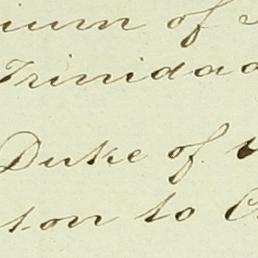 ium of
Trinidad
Duke of
ton to